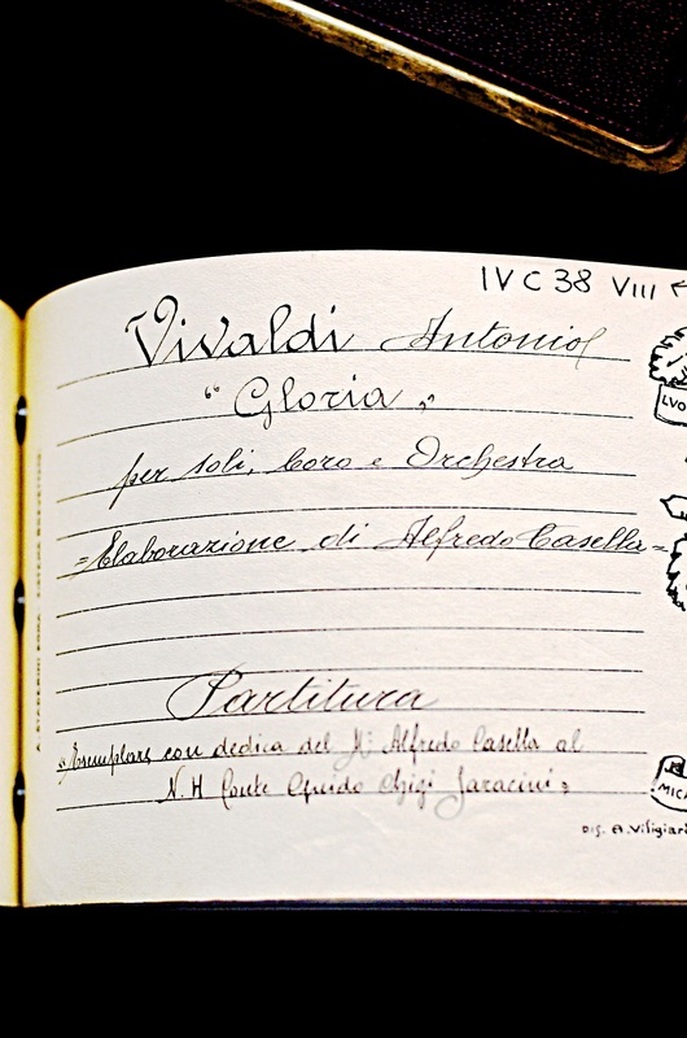 IV C 38 VIII
Vivaldi Antonio
"Gloria"
per soli, Coro e Orchestra
=Elaborazione di Alfredo Casella=
Partitura
"Esemplare con dedica del M° Alfredo Casella al
N.H. Conte Guido Chigi Saracini"
LVO
MICA
DIS. A. Viligiar
A. STADERINI ROMA - SISTEMA BREVETTATO